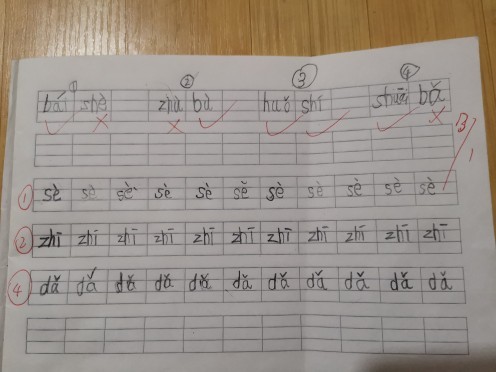 ① ② ③ ④
bá shè zhù bù huǒ shí shuāi bǎ
① sè sè sè sè sè sè sè sè sè sè sè
② zhī zhī zhī zhī zhī zhī zhī zhī zhī zhī zhī
④ dǎ dǎ dǎ dǎ dǎ dǎ dǎ dǎ dǎ dǎ dǎ